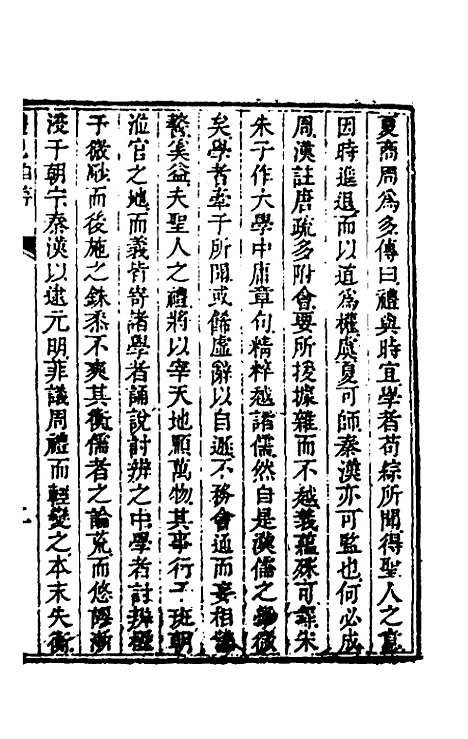 夏商周爲多傳曰禮與時宜學者苟綜所聞得聖人之意
因時進退而以道爲權虞夏可師秦漢亦可監也何必成
周漢註唐疏多附會要所援據雜而不越義蘊殊可繹宋
朱子作大學中庸章句精粹越諸儒然自是漢儒之學微
矣學者牽于所聞或餙虛辭以自遯不務會通而妄相
繁矣益夫聖人之禮將以宰天地順萬物其事行于班朝
涖官之地而義皆寄諸學者誦說討辨之中學者討辨極
于微眇而後施之銖黍不爽其衡儒者之論荒而悠繆漸
浸于朝宁秦漢以逮元明非議周禮而輕變之本末失衡